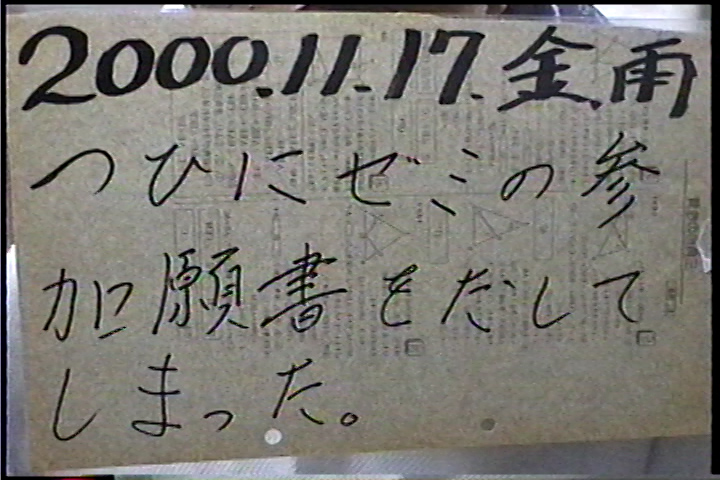 2000.11.17.金雨
つひにゼミの参
加願書をだして
しまった。